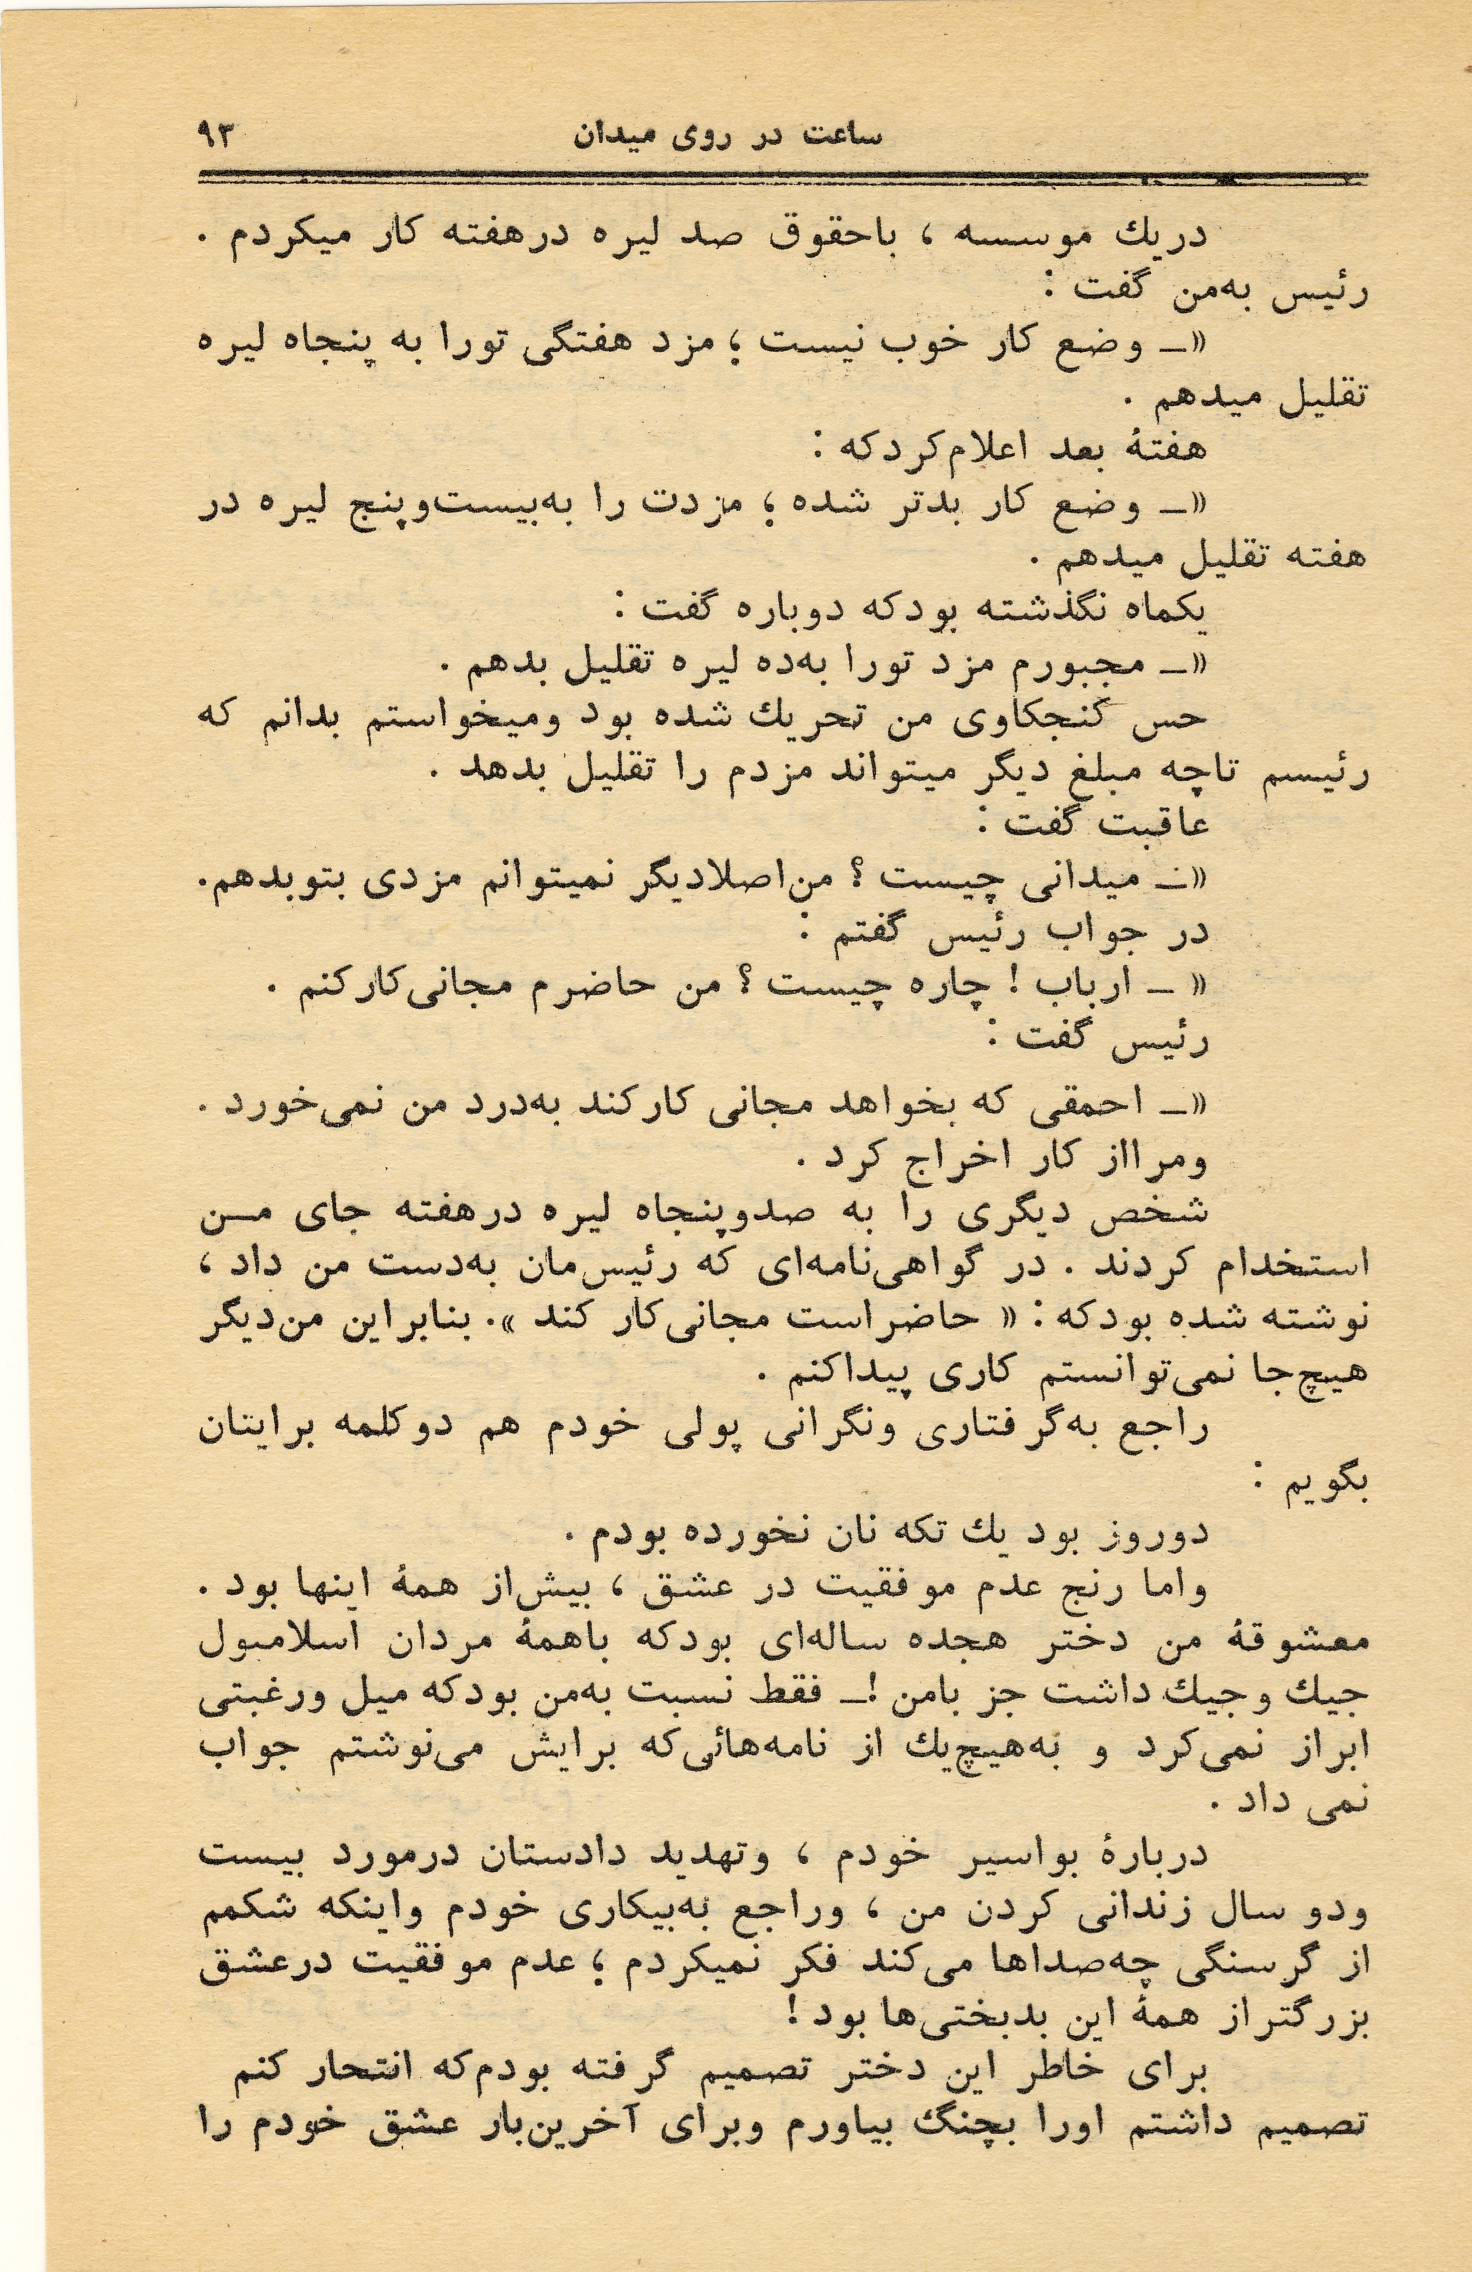 ساعت در روی میدان ۹۳
دریك موسسه ، باحقوق صد لیره درهفته کار میکردم .
رئیس به‌من گفت :
«ــ وضع کار خوب نیست ؛ مزد هفتگی تورا به پنجاه لیره
تقلیل میدهم .
هفتهٔ بعد اعلام‌کردکه :
«ــ وضع کار بدتر شده ؛ مزدت را به‌بیست‌وپنج لیره در
هفته تقلیل میدهم .
یکماه نگذشته بودکه دوباره گفت :
«ــ مجبورم مزد تورا به‌ده لیره تقلیل بدهم .
حس کنجکاوی من تحریك شده بود ومیخواستم بدانم که
رئیسم تاچه مبلغ دیگر میتواند مزدم را تقلیل بدهد .
عاقبت گفت :
«ــ میدانی چیست ؟ من‌اصلادیگر نمیتوانم مزدی بتوبدهم.
در جواب رئیس گفتم :
« ــ ارباب ! چاره چیست ؟ من حاضرم مجانی‌کارکنم .
رئیس گفت :
«ــ احمقی که بخواهد مجانی کارکند به‌درد من نمی‌خورد .
ومرااز کار اخراج کرد .
شخص دیگری را به صدوپنجاه لیره درهفته جای مـن
استخدام کردند . در گواهی‌نامه‌ای که رئیس‌مان به‌دست من داد ،
نوشته شده بودکه : « حاضراست مجانی‌کار کند ». بنابراین من‌دیگر
هیچ‌جا نمی‌توانستم کاری پیداکنم .
راجع به‌گرفتاری ونگرانی پولی خودم هم دوکلمه برایتان
بگویم :
دوروز بود یك تکه نان نخورده بودم .
واما رنج عدم موفقیت در عشق ، بیش‌از همهٔ اینها بود .
معشوقهٔ من دختر هجده ساله‌ای بودکه باهمهٔ مردان اسلامبول
جیك وجیك داشت جز بامن !ــ فقط نسبت به‌من بودکه میل ورغبتی
ابراز نمی‌کرد و به‌هیچ‌یك از نامه‌هائی‌که برایش می‌نوشتم جواب
نمی داد .
دربارهٔ بواسیر خودم ، وتهدید دادستان درمورد بیست
ودو سال زندانی کردن من ، وراجع به‌بیکاری خودم واینکه شکمم
از گرسنگی چه‌صداها می‌کند فکر نمیکردم ؛ عدم موفقیت درعشق
بزرگتراز همهٔ این بدبختی‌ها بود !
برای خاطر این دختر تصمیم گرفته بودم‌که انتحار کنم
تصمیم داشتم اورا بچنگ بیاورم وبرای آخرین‌بار عشق خودم را